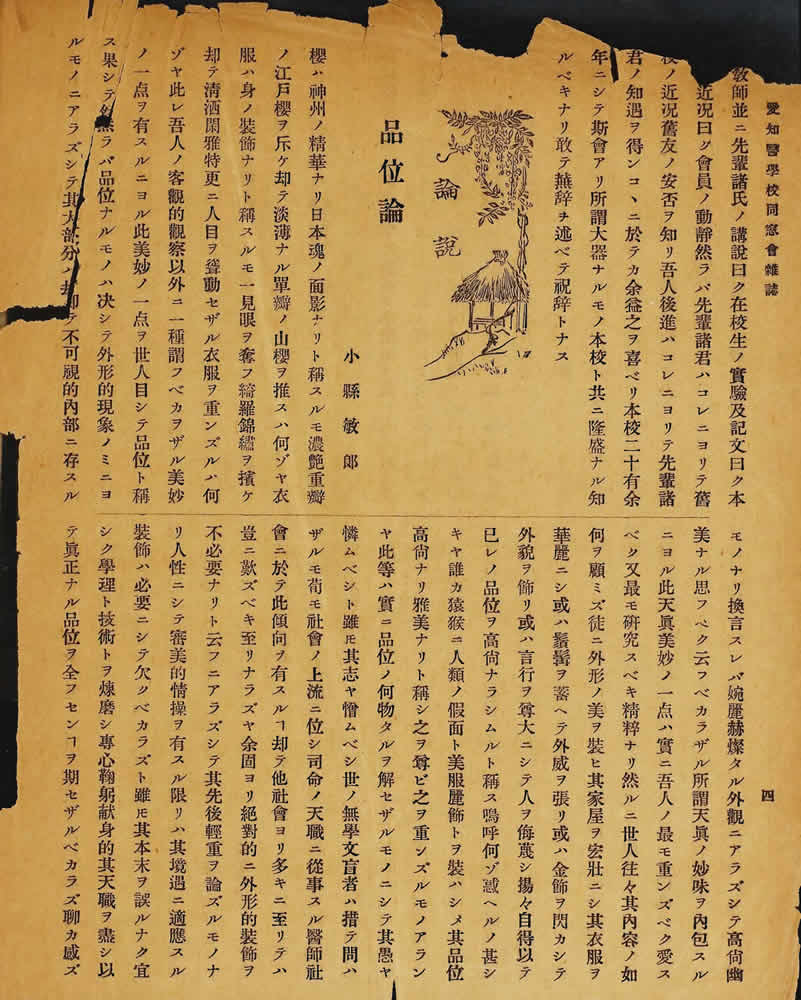 愛知醫學校同窓會雜誌
教師並ニ先輩諸氏ノ講説曰ク在校生ノ實驗及記文曰ク本
近况曰ク會員ノ動靜然ラバ先輩諸君ハコレニヨリテ舊
校ノ近况舊友ノ安否ヲ知リ吾人後進ハコレニヨリテ先輩諸
君ノ知遇ヲ得ンコヽニ於テカ余益之ヲ喜ベリ本校二十有余
年ニシテ斯會アリ所謂大器ナルモノ本校ト共ニ隆盛ナル知
ルベキナリ敢テ蕪辞ヲ述ベテ祝辞トナス
論説
品位論
小縣敏郎
櫻ハ神州ノ精華ナリ日本魂ノ面影ナリト稱スルモ濃艶重瓣
ノ江戸櫻ヲ斥ケ却テ淡薄ナル單瓣ノ山櫻ヲ推スハ何ゾヤ衣
服ハ身ノ裝飾ナリト稱スルモ一見眼ヲ奪フ綺羅錦繡ヲ擯ケ
却テ清洒閑雅特更ニ人目ヲ聳動セザル衣服ヲ重ンズルハ何
ゾヤ此レ吾人ノ客觀的觀察以外ニ一種謂フベカヲザル美妙
ノ一点ヲ有スルニヨル此美妙ノ一点ヲ世人目シテ品位ト稱
ス果シテ然ラバ品位ナルモノハ决シテ外形的現象ノミニヨ
ルモノニアラズシテ其大部分ハ却テ不可視的內部ニ存スル
モノナリ換言スレバ婉麗赫燦タル外觀ニアラズシテ高尙幽
美ナル思フベク云フベカラザル所謂天眞ノ妙味ヲ內包スル
ニヨル此天眞美妙ノ一点ハ實ニ吾人ノ最モ重ンズベク愛ス
ベク又最モ硏究スベキ精粹ナリ然ルニ世人往々其內容ノ如
何ヲ顧ミズ徒ニ外形ノ美ヲ裝ヒ其家屋ヲ宏壯ニシ其衣服ヲ
華麗ニシ或ハ鬚髯ヲ蓄ヘテ外威ヲ張リ或ハ金飾ヲ閃カシテ
外貌ヲ飾リ或ハ言行ヲ尊大ニシテ人ヲ侮蔑シ揚々自得以テ
已レノ品位ヲ高尙ナラシムルト稱ス嗚呼何ゾ惑ヘルノ甚シ
キヤ誰カ猿猴ニ人類ノ假面ト美服麗飾トヲ裝ハシメ其品位
高尙ナリ雅美ナリト稱シ之ヲ尊ビ之ヲ重ンズルモノアラン
ヤ此等ハ實ニ品位ノ何物タルヲ解セザルモノニシテ其愚ヤ
憐ムベシト雖モ其志ヤ憎ムベシ世ノ無學文盲者ハ措テ問ハ
ザルモ苟モ社會ノ上流ニ位シ司命ノ天職ニ從事スル醫師社
會ニ於テ此傾向ヲ有スルヿ却テ他社會ヨリ多キニ至リテハ
豈ニ歎ズベキ至リナラズヤ余固ヨリ絕對的ニ外形的裝飾ヲ
不必要ナリト云フニアラズシテ其先後輕重ヲ論ズルモノナ
リ人性ニシテ審美的情操ヲ有スル限リハ其境遇ニ適應スル
裝飾ハ必要ニシテ欠クベカラズト雖モ其本末ヲ誤ルナク宜
シク學理ト技術トヲ煉磨シ專心鞠躬献身的其天職ヲ盡シ以
テ眞正ナル品位ヲ全フセンヿヲ期セザルベカラズ聊カ感ズ
四